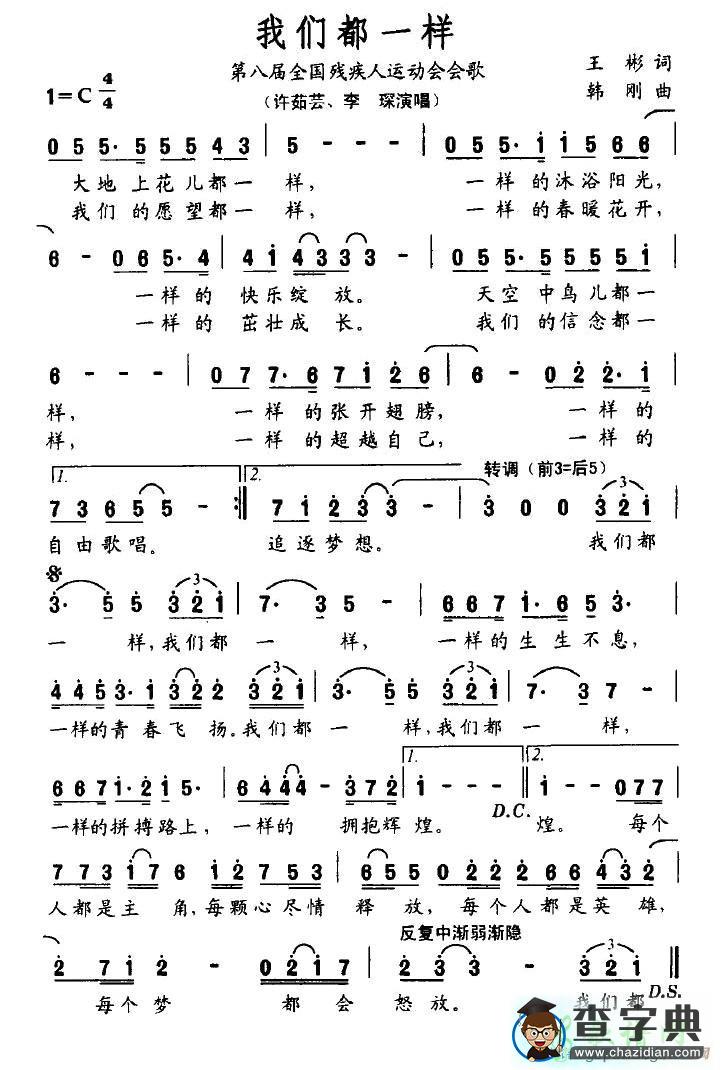 我们都一样
第八届全国残疾人运动会会歌
王 彬 词
1=C 4/4
（许茹芸、李 琛演唱）
韩 刚 曲
0 5 5· 5 5 5 5 4 3 | 5 - - - | 0 5 5· 1 1 5 6 6 |
大地 上花儿都一 样， 一样 的沐浴阳光，
我们 的愿望都一 样， 一样 的春暖花开，
6 - 0 6 5· 4 | 4 1 4 3 3 3 3 - | 0 5 5· 5 5 5 5 5 1 |
一样 的 快乐绽 放。 天空 中鸟儿都一
一样 的 茁壮成 长。 我们 的信念都一
6 - - - | 0 7 7· 6 7 1 2 6 | 6 - 0 2 2· 1 |
样， 一样 的张开翅膀， 一样的
样， 一样 的超越自己， 一样的
1. 2. 转调（前3=后5）
7 3 6 5 5 5 - :‖ 7 1 2 3 3 - | 3 0 0 3 2 1 |
自由歌唱。 追逐梦想。 我们都
3· 5 5 3 2 1 | 7· 3 5 - | 6 6 7 1· 6 5 3· |
一 样，我们都 一 样， 一样的生生不息，
4 4 5 3· 1 3 2 2 3 2 1 | 3· 5 5 3 2 1 | 7· 3 7 - |
一样的青春飞 扬。我们都 一 样，我们都 一 样，
1. 2.
6 6 7 1· 2 1 5· | 6 4 4 4 - 3 7 2 | 1 - - - ‖ 1 - 0 7 7 |
一样的拼搏路上，一样的 拥抱辉 煌。 煌。 每个
D.C.
7 7 3 1 7 6 | 2 2 2 7 5 3 | 6 5 5 0 2 2 2 | 6 4 3 2 |
人都是主 角，每颗心尽情 释 放，每个人都是英雄，
反复中渐弱渐隐
2 7 1 2 - | 0 0 2 1 7 | 2 3 3 - 3 2 1 ‖
每个梦 都会 怒放。 我们都
D.S.
查字典
www.chazidian.com